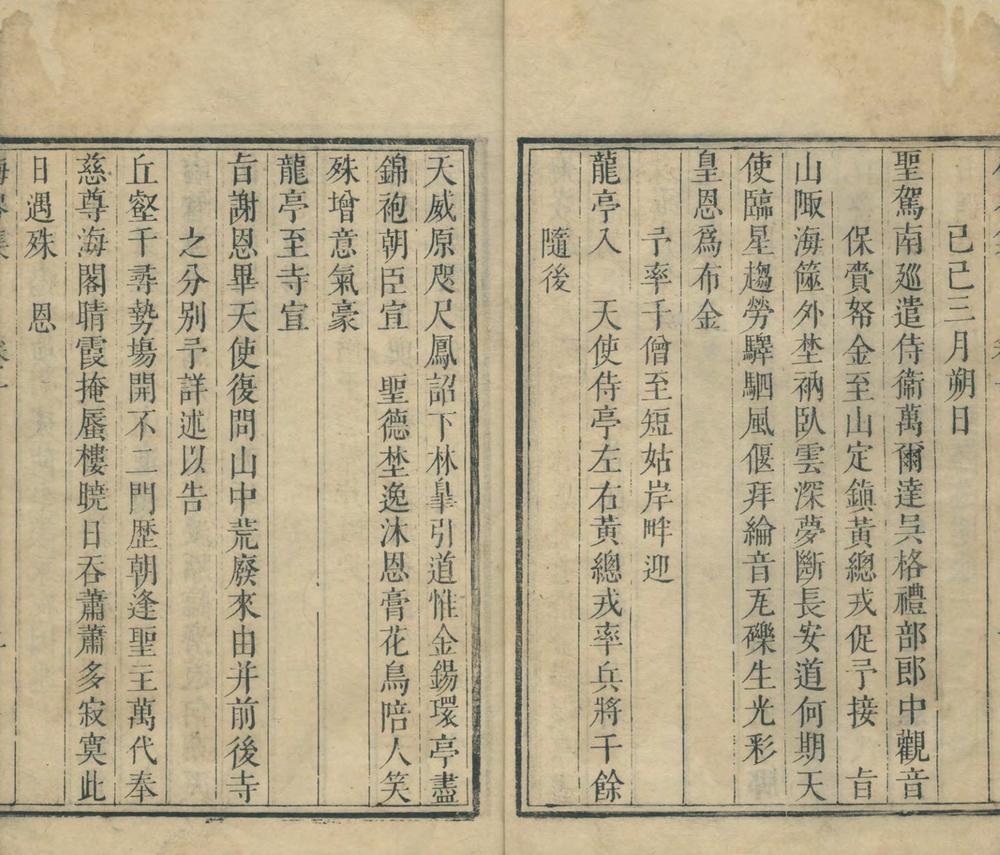 己巳三月朔日
聖駕南廵遣侍衞萬爾達吳格禮部郎中觀音
保賷帑金至山定鎮黃總戎促予接　㫖
山陬海筮外埜衲臥雲深夢斷長安道何期天
使臨星趨勞驛駟風偃拜綸音瓦礫生光彩
皇恩爲布金
予率千僧至短姑岸畔迎
龍亭入　天使侍亭左右黃總戎率兵將千餘
隨後
天威原咫尺鳳詔下林臯引道惟金錫環亭盡
錦袍朝臣宣　聖德埜逸沐恩膏花鳥陪人笑
殊增意氣豪
龍亭至寺宣
㫖謝恩畢天使復問山中荒廢來由并前後寺
之分別予詳述以告
丘壑千尋勢塲開不二門歷朝逢聖主萬代奉
慈尊海閣晴霞掩蜃樓曉日吞蕭蕭多寂寞此
日遇殊　恩